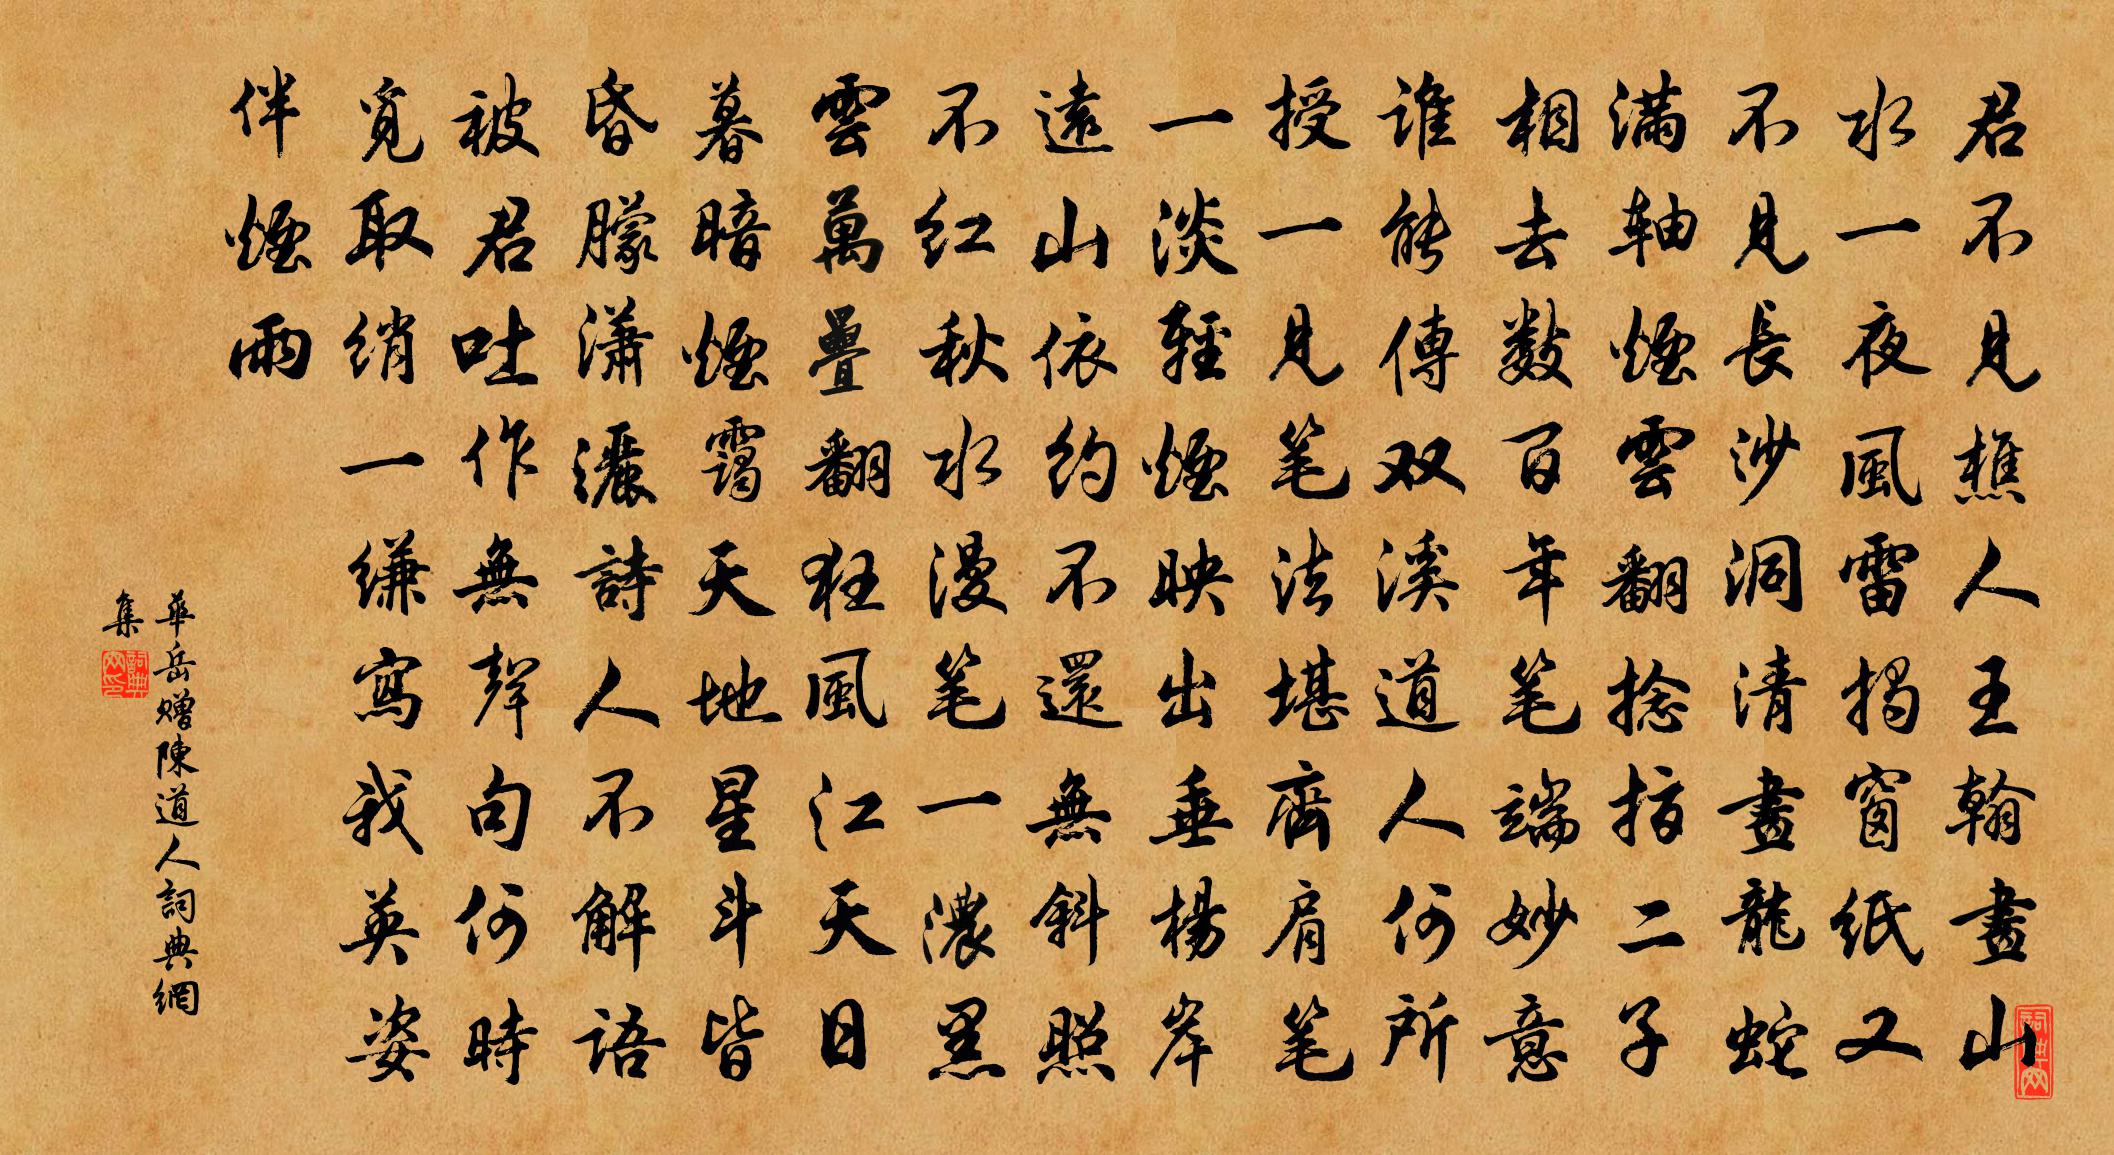 君不見樵人王翰畫山
水一夜風雷揭窗紙又
不見長沙洞清畫龍蛇
满轴煙雲翻捻指二子
相去數百年笔端妙意
谁能傳双溪道人何所
授一見笔法堪齊肩笔
一淡輕煙映出垂楊岸
遠山依約不還無斜照
不红秋水漫笔一濃黑
雲萬疊翻狂風江天日
暮暗煙靄天地星斗皆
昏朦潇灑詩人不解語
被君吐作無聲句何時
覓取绡一缣寫我英姿
伴煙雨
華岳赠陳道人詞典網
集
詞典网印
詞典网